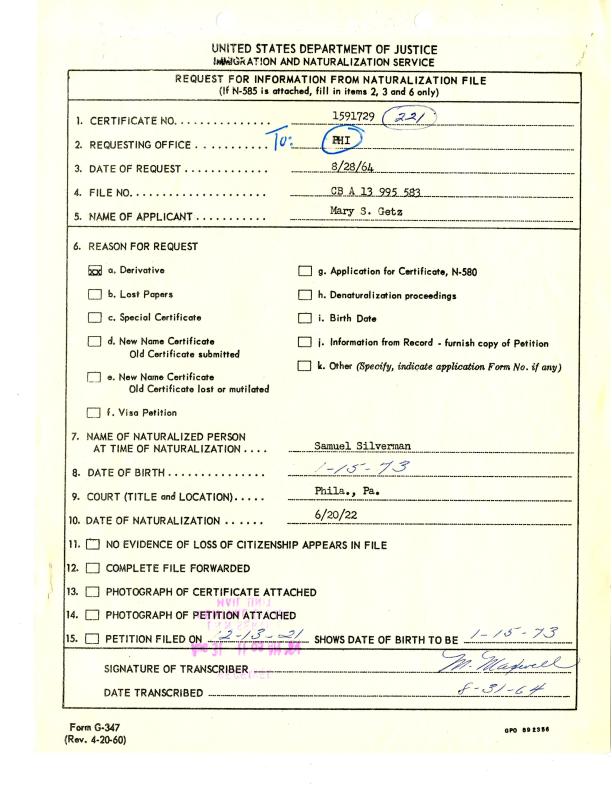 UNITED STATES DEPARTMENT OF JUSTICE
IMMIGRATION AND NATURALIZATION SERVICE
REQUEST FOR INFORMATION FROM NATURALIZATION FILE
(If N-585 is attached, fill in items 2, 3 and 6 only)
1. CERTIFICATE NO. . . . . . . . . . . . . . . 1591729 221
2. REQUESTING OFFICE . . . . . . . . . . . To: PHI
3. DATE OF REQUEST . . . . . . . . . . . . . 8/28/64
4. FILE NO. . . . . . . . . . . . . . . . . . . . CB A 13 995 583
5. NAME OF APPLICANT . . . . . . . . . . . Mary S. Getz
6. REASON FOR REQUEST
a. Derivative
b. Lost Papers
c. Special Certificate
d. New Name Certificate
Old Certificate submitted
e. New Name Certificate
Old Certificate lost or mutilated
f. Visa Petition
g. Application for Certificate, N-580
h. Denaturalization proceedings
i. Birth Date
j. Information from Record - furnish copy of Petition
k. Other (Specify, indicate application Form No. if any)
7. NAME OF NATURALIZED PERSON
AT TIME OF NATURALIZATION . . . . Samuel Silverman
8. DATE OF BIRTH . . . . . . . . . . . . . . . 1-15-73
9. COURT (TITLE and LOCATION) . . . . . Phila., Pa.
10. DATE OF NATURALIZATION . . . . . . 6/20/22
11. NO EVIDENCE OF LOSS OF CITIZENSHIP APPEARS IN FILE
12. COMPLETE FILE FORWARDED
13. PHOTOGRAPH OF CERTIFICATE ATTACHED
14. PHOTOGRAPH OF PETITION ATTACHED
15. PETITION FILED ON 12-13-21 SHOWS DATE OF BIRTH TO BE 1-15-73
SIGNATURE OF TRANSCRIBER M. Maxwell
DATE TRANSCRIBED 8-31-64
Form G-347
(Rev. 4-20-60)
GPO 892356